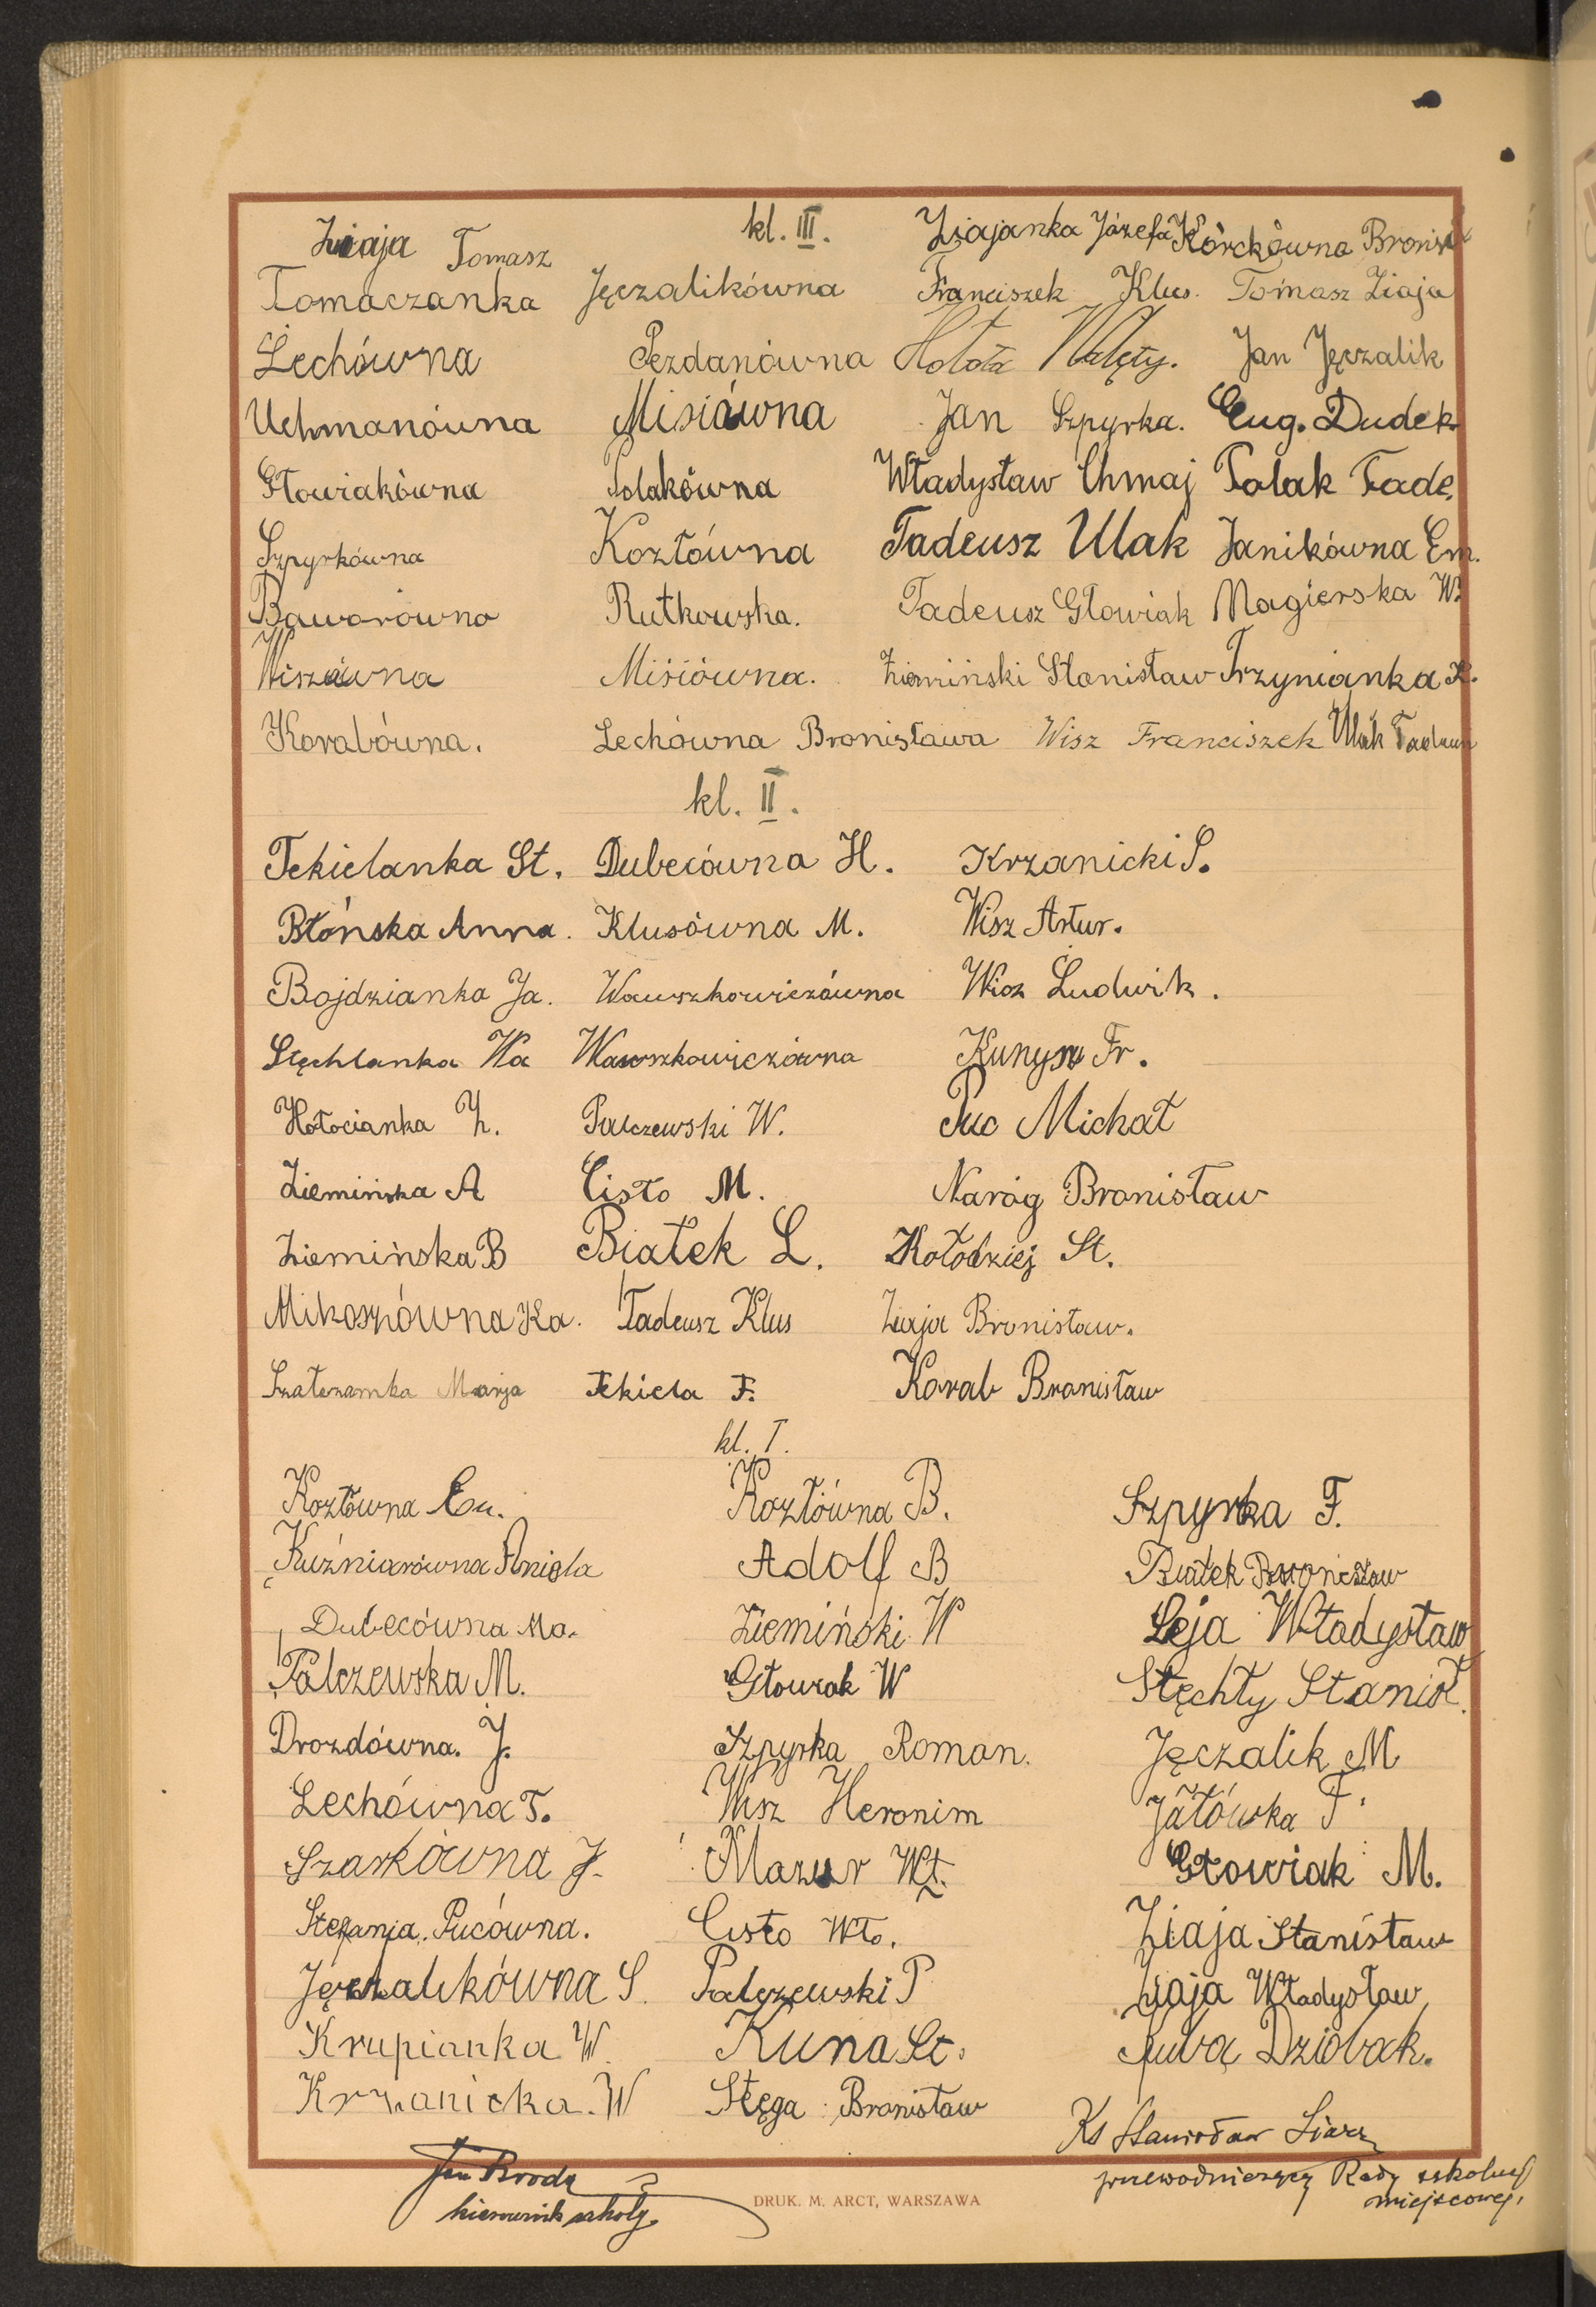 Ziaja Tomasz kl. III. Ziajanka Józefa Korckówna Bronisł
Tomaczanka Jęczalikówna Franciszek Klus. Tomasz Ziaja
Lechówna Pezdanówna Hołota Walęty. Jan Jęczalik
Uchmanówna Misiówna Jan Szpyrka. Eug. Dudek
Głowiakówna Polakówna Władysław Chmaj Polak Tade.
Szpyrkówna Kozłówna Tadeusz Ulak Janikówna Em.
Baworówna Rutkowska. Tadeusz Głowiak Magierska W.
Wiszówna Misiówna. Ziemiński Stanisław Trzynianka K.
Korabówna. Lechówna Bronisława Wisz Franciszek Ulak Tadeusz
kl. II.
Tekielanka St. Dubecówna H. Krzanicki S.
Błońska Anna. Klusówna M. Wisz Artur.
Bojdzianka Ja. Wawszkowiczówna Wisz Ludwik.
Stęchlanka Wa Wawszkowiczówna Kunysz Fr.
Hołocianka Z. Palczewski W. Puc Michał
Ziemińska A Cisło M. Naróg Bronisław
Ziemińska B Białek L. Kołodziej St.
Mikoszówna Ka. Tadeusz Klus Ziaja Bronisław.
Szałczamka Marja Tekiela F. Korab Bronisław
kl. I.
Kozłówna Em. Kozłówna B. Szpyrka F.
Kuźniarówna Aniela Adolf B Białek Bronisław
Dubecówna Ma. Ziemiński W Leja Władysław
Palczewska M. Głowiak W Stęchły Stanisł.
Drozdówna. J. Szpyrka Roman. Jęczalik M
Lechówna T. Wisz Heronim Jałówka F.
Szarkówna J. Mazur Wł. Głowiak M.
Stefanja. Pucówna. Cisło Wło. Ziaja Stanisław
Jęczalikówna S. Palczewski P Ziaja Władysław
Krupianka W. Kuna St. Dziobak.
Krzanicka. W Stęga Bronisław
Ks Stanisław Siara
Jan Broda przewodniczący Rady szkolnej
kierownik szkoły. miejscowej.
DRUK. M. ARCT, WARSZAWA